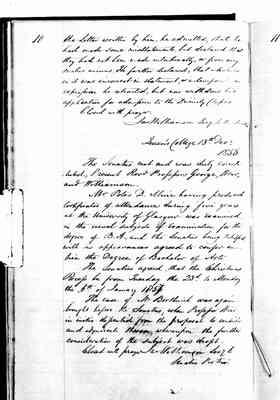 10
11
the letter written by him, he admitted, that he
had made some misstatements but declared that
they had not been made intentionally, or from any
sinister motives. He further declared, that
it was incorrect in statement,
expression he retracted, but now withdrew his
application for admission to the Divinity
Closed with prayer.
Queen's College 13th Decr
1856
The Senatus met and was duly consti-
tuted. Present Revd Professors George, Weir,
and Williamson.
Mr Peter D. Muir having produced
certificates of attendance during five years
at the University of Glasgow was examined
in the usual subjects of Examination for the
degree of B.A. and the Senatus being satisfied
with his appearances agreed to confer on
him the Degree of Bachelor of Arts.
The Senatus agreed that the Christmas
Recess be from Tuesday the 23d to Monday
the 5th of January 1857
The case of Mr Borthwick was again
brought before the Senatus, when Professor Weir
from the proposal to
and whereupon the further
consideration of the subject was dropt.
Closed with prayer